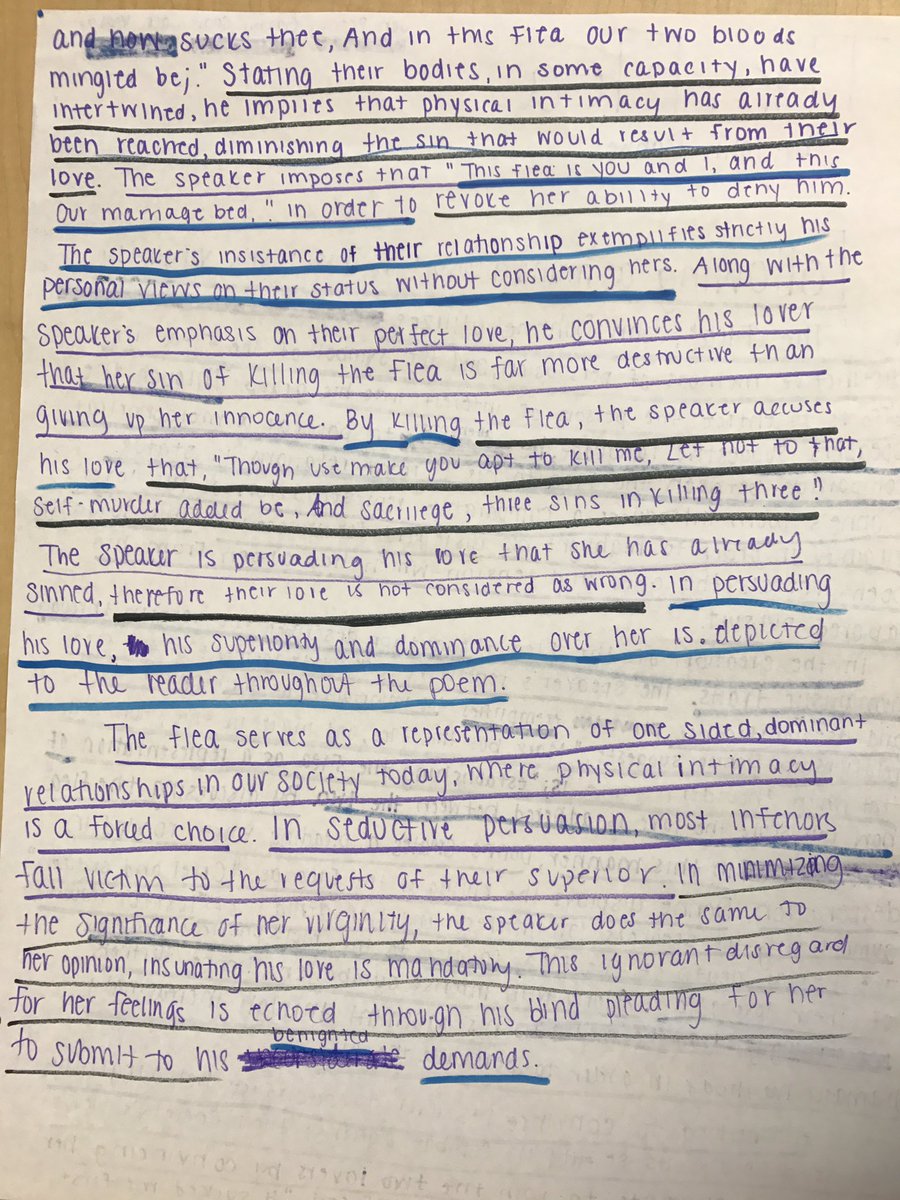 and now sucks thee, And in this flea our two bloods
mingled be;" Stating their bodies, in some capacity, have
intertwined, he implies that physical intimacy has already
been reached, diminishing the sin that would result from their
love. The speaker imposes that "This flea is you and I, and this
Our marriage bed," in order to revoke her ability to deny him.
The speaker's insistance of their relationship exemplifies strictly his
personal views on their status without considering hers. Along with the
speaker's emphasis on their perfect love, he convinces his lover
that her sin of killing the flea is far more destructive than
giving up her innocence. By killing the flea, the speaker accuses
his love that, "Though use make you apt to kill me, Let not to that,
Self-murder added be, And sacrilege, three sins in killing three."
The speaker is persuading his love that she has already
sinned, therefore their love is not considered as wrong. In persuading
his love, his superiority and dominance over her is depicted
to the reader throughout the poem.
The flea serves as a representation of one sided, dominant
relationships in our society today, where physical intimacy
is a forced choice. In seductive persuasion, most inferiors
fall victim to the requests of their superior. In minimizing
the significance of her virginity, the speaker does the same to
her opinion, insunating his love is mandatory. This ignorant disregard
for her feelings is echoed through his blind pleading for her
to submit to his benighted demands.